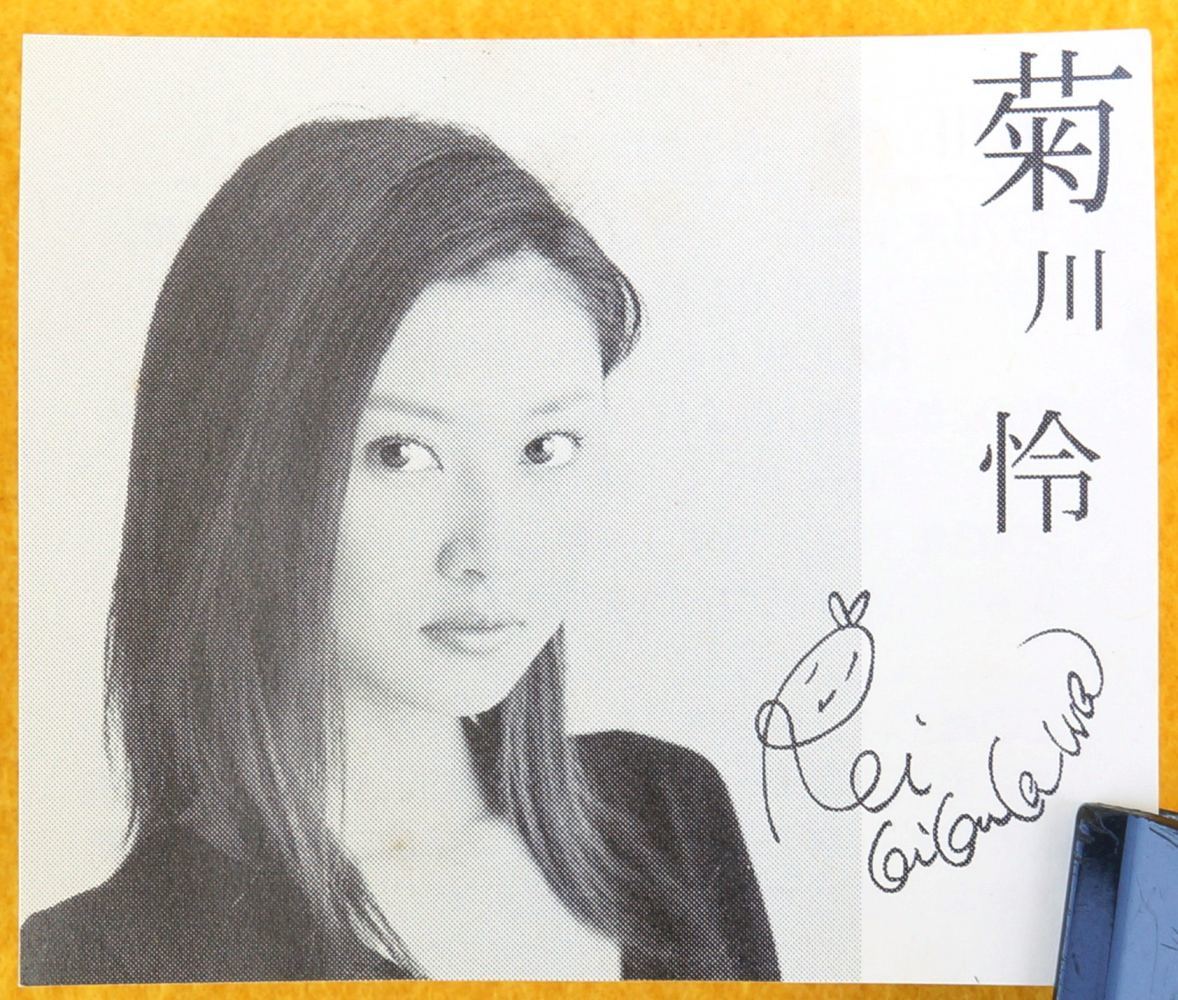 菊川怜
Rei
Kikukawa